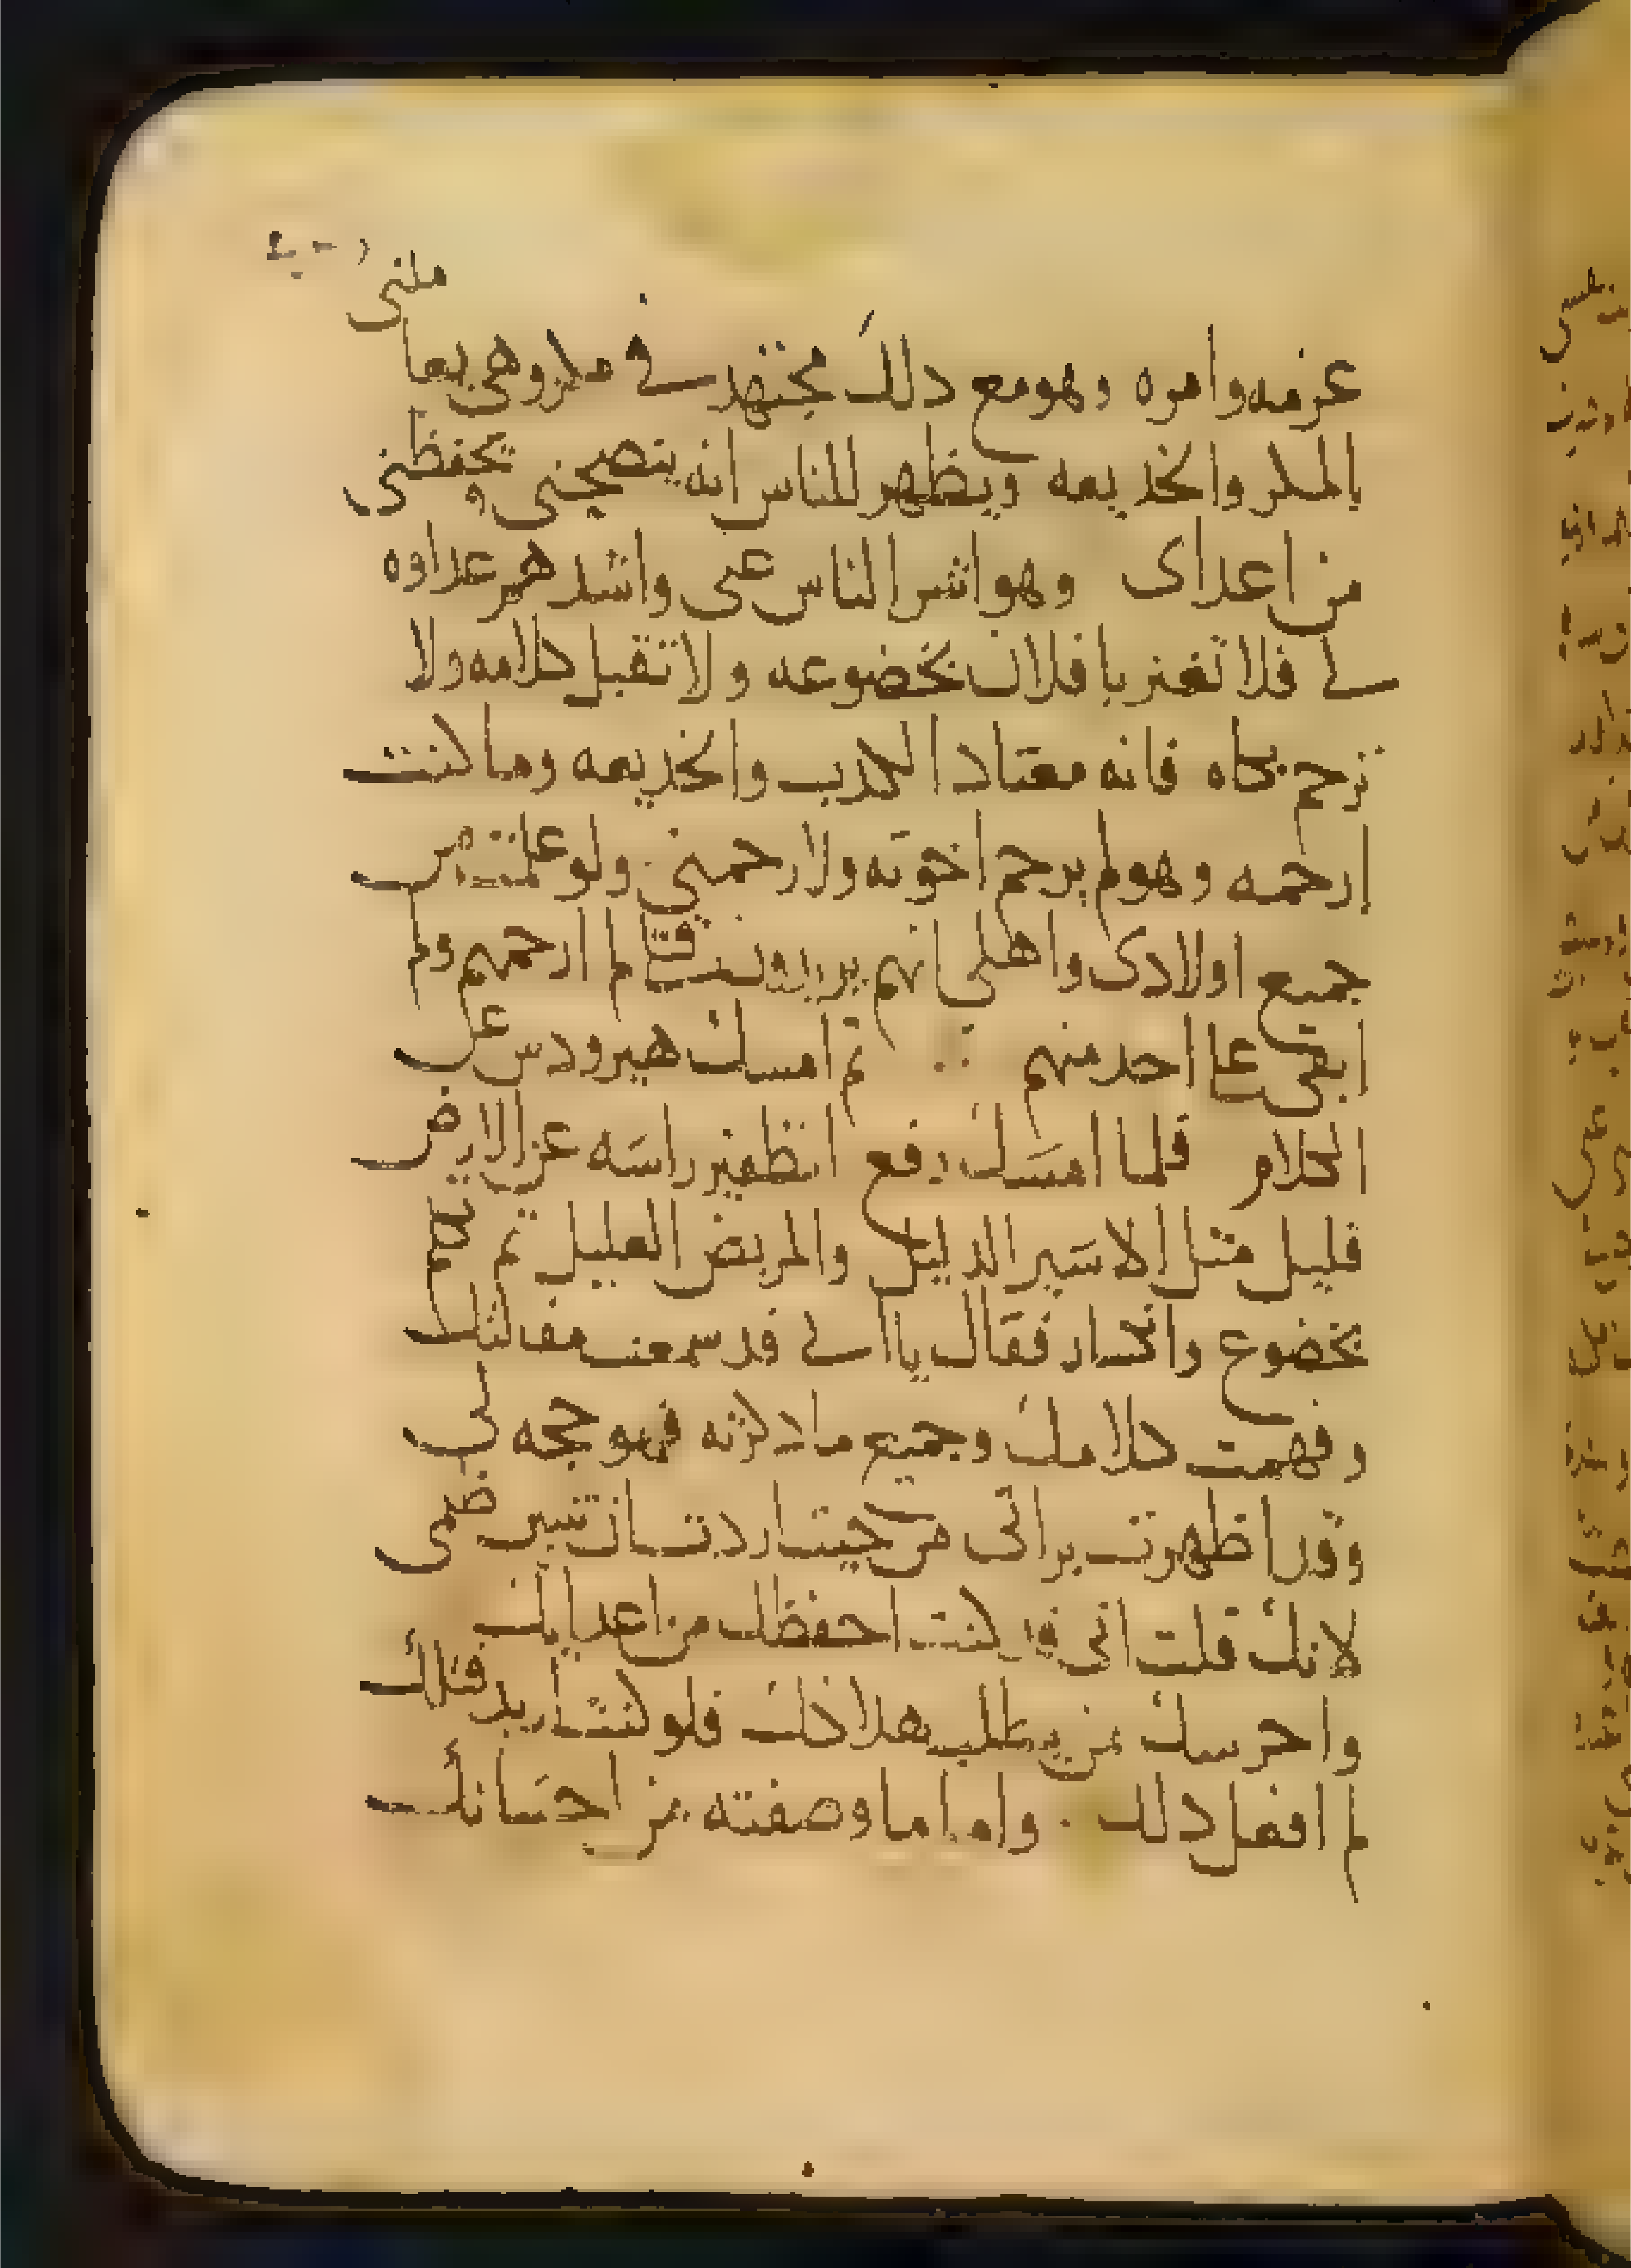 عزمه وامره وهو مع دلك مجتهد في مكروهي يعاملني
بالمكر والخديعه ويظهر للناس انه ينصحني ويحفظني
من اعداى وهو اشر الناس عى واشدهم عداوه
لي فلا تغتر يا فلان بخضوعه ولا تقبل كلامه ولا
ترحم بكاه فانه معتاد الكدب والخديعه وما كنت
ارحمه وهو لم يرحم اخوته ولا رحمني ولو علمت من
جميع اولادى واهلي انهم يريدون قتلي لم ارحمهم ولم
ابقى على احد منهم ثم امسك هيرودس عن
الكلام فلما امسك رفع انظفير راسه عن الارض
قليل مثل الاسير الدليل والمريض العليل ثم تكلم
بخضوع وانكسار فقال يا ابي قد سمعت مقالتك
وفهمت كلامك وجميع ما دكرته فهو حجه لي
وقد اظهرت براتى من حيت اردت ان تتبين ظلمى
لانك قلت انى قد كنت احفظك من اعدايك
واحرسك من يطلب هلاكك فلو كنت اريد قتلك
لم افعل دلك واما ما وصفته من احسانك